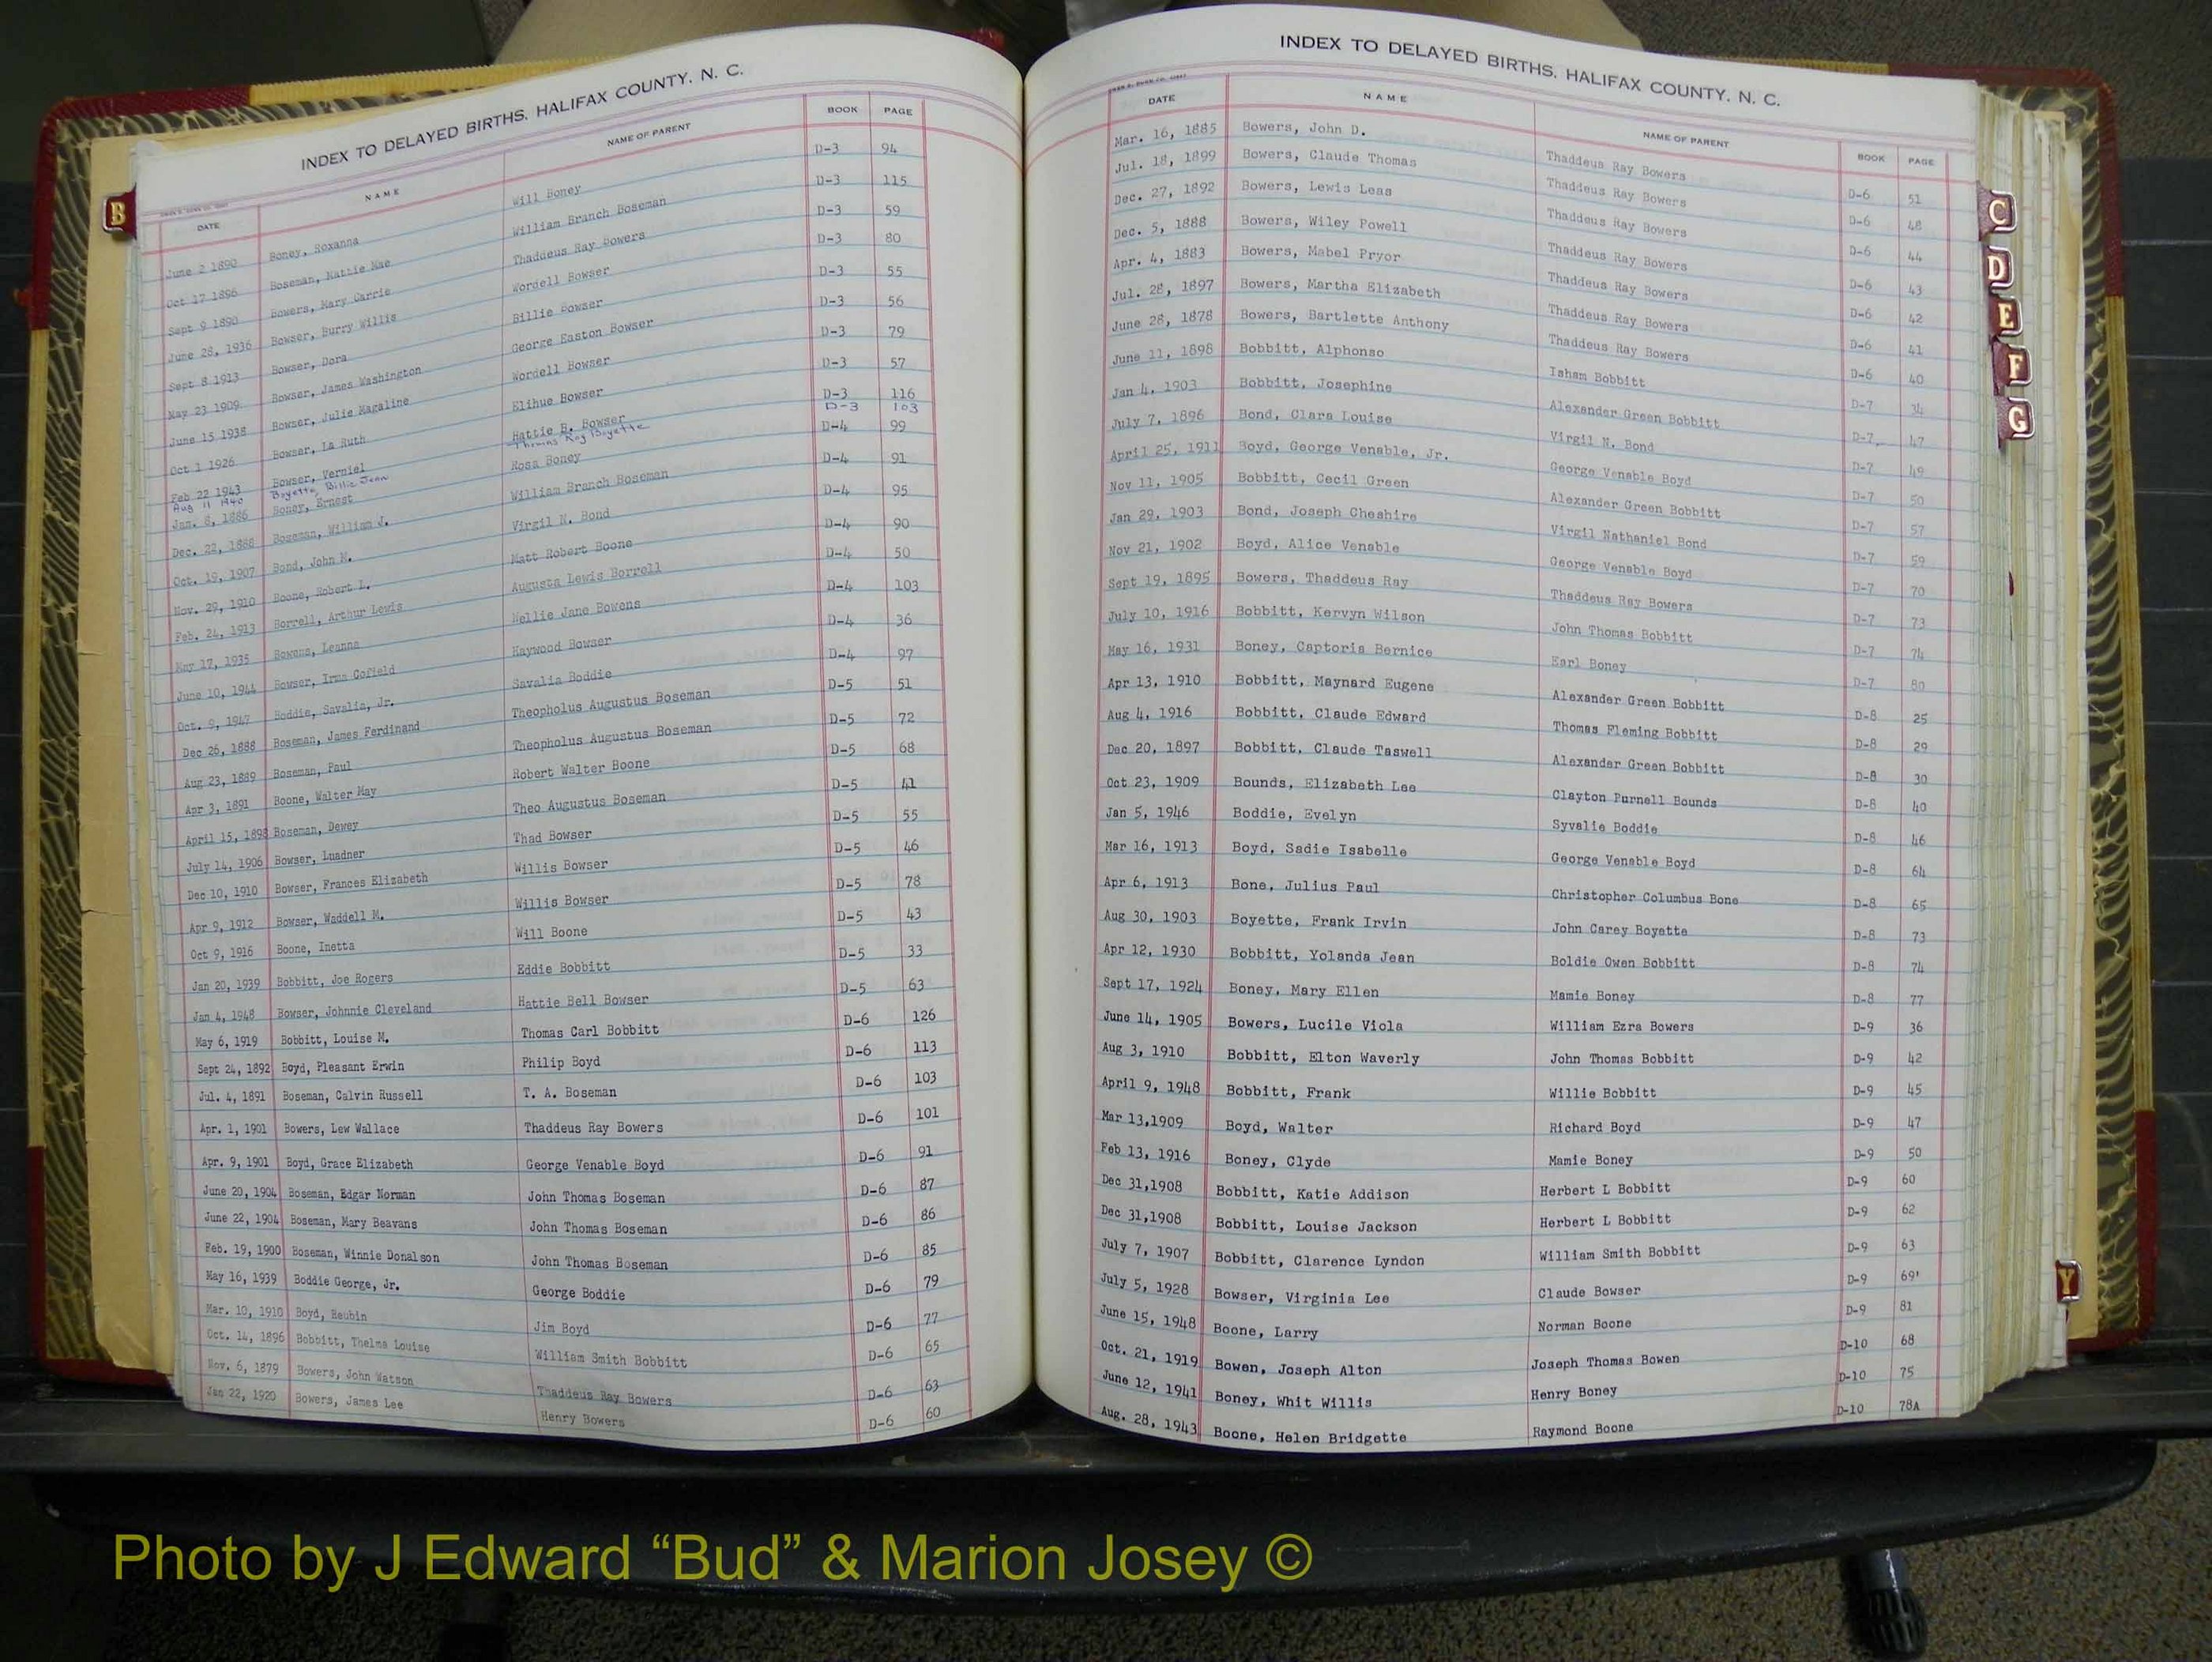 INDEX TO DELAYED BIRTHS, HALIFAX COUNTY, N. C.
DATE NAME NAME OF PARENT BOOK PAGE
June 2 1890 Boney, Roxanna Will Boney D-3 94
Oct 17 1896 Boseman, Mattie Mae William Branch Boseman D-3 115
Sept 9 1890 Bowers, Mary Carrie Thaddeus Ray Bowers D-3 59
June 28, 1936 Bowser, Burry Willis Wordell Bowser D-3 80
Sept 8 1913 Bowser, Dora Billie Bowser D-3 55
May 23 1909 Bowser, James Washington George Easton Bowser D-3 56
June 15 1938 Bowser, Julie Magaline Wordell Bowser D-3 79
Oct 1 1926 Bowser, La Ruth Elihue Bowser D-3 57
Feb 22 1943 Bowser, Verniel Hattie B. Bowser D-3 116
Aug 11 1940 Boyette, Billie Jean Thomas Roy Boyette D-3 103
Jan. 8, 1886 Boney, Ernest Rosa Boney D-4 99
Dec. 22, 1888 Boseman, William J. William Branch Boseman D-4 91
Oct. 19, 1907 Bond, John N. Virgil N. Bond D-4 95
Nov. 29, 1910 Boone, Robert L. Matt Robert Boone D-4 90
Feb. 24, 1913 Borrell, Arthur Lewis Augusta Lewis Borrell D-4 50
May 17, 1935 Bowens, Leanna Nellie Jane Bowens D-4 103
June 10, 1944 Bowser, Irma Cofield Haywood Bowser D-4 36
Oct. 9, 1947 Boddie, Savalia, Jr. Savalia Boddie D-4 97
Dec 26, 1888 Boseman, James Ferdinand Theopholus Augustus Boseman D-5 51
Aug 23, 1889 Boseman, Paul Theopholus Augustus Boseman D-5 72
Apr 3, 1891 Boone, Walter May Robert Walter Boone D-5 68
April 15, 1898 Boseman, Dewey Theo Augustus Boseman D-5 41
July 14, 1906 Bowser, Luadner Thad Bowser D-5 55
Dec 10, 1910 Bowser, Frances Elizabeth Willis Bowser D-5 46
Apr 9, 1912 Bowser, Waddell M. Willis Bowser D-5 78
Oct 9, 1916 Boone, Inetta Will Boone D-5 43
Jan 20, 1939 Bobbitt, Joe Rogers Eddie Bobbitt D-5 33
Jan 4, 1948 Bowser, Johnnie Cleveland Hattie Bell Bowser D-5 63
May 6, 1919 Bobbitt, Louise M. Thomas Carl Bobbitt D-6 126
Sept 24, 1892 Boyd, Pleasant Erwin Philip Boyd D-6 113
Jul. 4, 1891 Boseman, Calvin Russell T. A. Boseman D-6 103
Apr. 1, 1901 Bowers, Lew Wallace Thaddeus Ray Bowers D-6 101
Apr. 9, 1901 Boyd, Grace Elizabeth George Venable Boyd D-6 91
June 20, 1904 Boseman, Edgar Norman John Thomas Boseman D-6 87
June 22, 1904 Boseman, Mary Beavans John Thomas Boseman D-6 86
Feb. 19, 1900 Boseman, Winnie Donalson John Thomas Boseman D-6 85
May 16, 1939 Boddie George, Jr. George Boddie D-6 79
Mar. 10, 1910 Boyd, Reubin Jim Boyd D-6 77
Oct. 14, 1896 Bobbitt, Thelma Louise William Smith Bobbitt D-6 65
Nov. 6, 1879 Bowers, John Watson Thaddeus Ray Bowers D-6 63
Jan 22, 1920 Bowers, James Lee Henry Bowers D-6 60
B
INDEX TO DELAYED BIRTHS, HALIFAX COUNTY, N. C.
DATE NAME NAME OF PARENT BOOK PAGE
Mar. 16, 1885 Bowers, John D. Thaddeus Ray Bowers D-6 51
Jul. 18, 1899 Bowers, Claude Thomas Thaddeus Ray Bowers D-6 48
Dec. 27, 1892 Bowers, Lewis Leas Thaddeus Ray Bowers D-6 44
Dec. 5, 1888 Bowers, Wiley Powell Thaddeus Ray Bowers D-6 43
Apr. 4, 1883 Bowers, Mabel Pryor Thaddeus Ray Bowers D-6 42
Jul. 28, 1897 Bowers, Martha Elizabeth Thaddeus Ray Bowers D-6 41
June 28, 1878 Bowers, Bartlette Anthony Thaddeus Ray Bowers D-6 40
June 11, 1898 Bobbitt, Alphonso Isham Bobbitt D-7 34
Jan 4, 1903 Bobbitt, Josephine Alexander Green Bobbitt D-7 47
July 7, 1896 Bond, Clara Louise Virgil N. Bond D-7 49
April 25, 1911 Boyd, George Venable, Jr. George Venable Boyd D-7 50
Nov 11, 1905 Bobbitt, Cecil Green Alexander Green Bobbitt D-7 57
Jan 29, 1903 Bond, Joseph Cheshire Virgil Nathaniel Bond D-7 59
Nov 21, 1902 Boyd, Alice Venable George Venable Boyd D-7 70
Sept 19, 1895 Bowers, Thaddeus Ray Thaddeus Ray Bowers D-7 73
July 10, 1916 Bobbitt, Kervyn Wilson John Thomas Bobbitt D-7 74
May 16, 1931 Boney, Captoria Bernice Earl Boney D-7 80
Apr 13, 1910 Bobbitt, Maynard Eugene Alexander Green Bobbitt D-8 25
Aug 4, 1916 Bobbitt, Claude Edward Thomas Fleming Bobbitt D-8 29
Dec 20, 1897 Bobbitt, Claude Taswell Alexander Green Bobbitt D-8 30
Oct 23, 1909 Bounds, Elizabeth Lee Clayton Purnell Bounds D-8 40
Jan 5, 1946 Boddie, Evelyn Syvalie Boddie D-8 46
Mar 16, 1913 Boyd, Sadie Isabelle George Venable Boyd D-8 64
Apr 6, 1913 Bone, Julius Paul Christopher Columbus Bone D-8 65
Aug 30, 1903 Boyette, Frank Irvin John Carey Boyette D-8 73
Apr 12, 1930 Bobbitt, Yolanda Jean Boldie Owen Bobbitt D-8 74
Sept 17, 1924 Boney, Mary Ellen Mamie Boney D-8 77
June 14, 1905 Bowers, Lucile Viola William Ezra Bowers D-9 36
Aug 3, 1910 Bobbitt, Elton Waverly John Thomas Bobbitt D-9 42
April 9, 1948 Bobbitt, Frank Willie Bobbitt D-9 45
Mar 13,1909 Boyd, Walter Richard Boyd D-9 47
Feb 13, 1916 Boney, Clyde Mamie Boney D-9 50
Dec 31,1908 Bobbitt, Katie Addison Herbert L Bobbitt D-9 60
Dec 31,1908 Bobbitt, Louise Jackson Herbert L Bobbitt D-9 62
July 7, 1907 Bobbitt, Clarence Lyndon William Smith Bobbitt D-9 63
July 5, 1928 Bowser, Virginia Lee Claude Bowser D-9 69'
June 15, 1948 Boone, Larry Norman Boone D-9 81
Oct. 21, 1919 Bowen, Joseph Alton Joseph Thomas Bowen D-10 68
June 12, 1941 Boney, Whit Willis Henry Boney D-10 75
Aug. 28, 1943 Boone, Helen Bridgette Raymond Boone D-10 78A
C
D
E
F
G
Y
Photo by J Edward “Bud” & Marion Josey ©